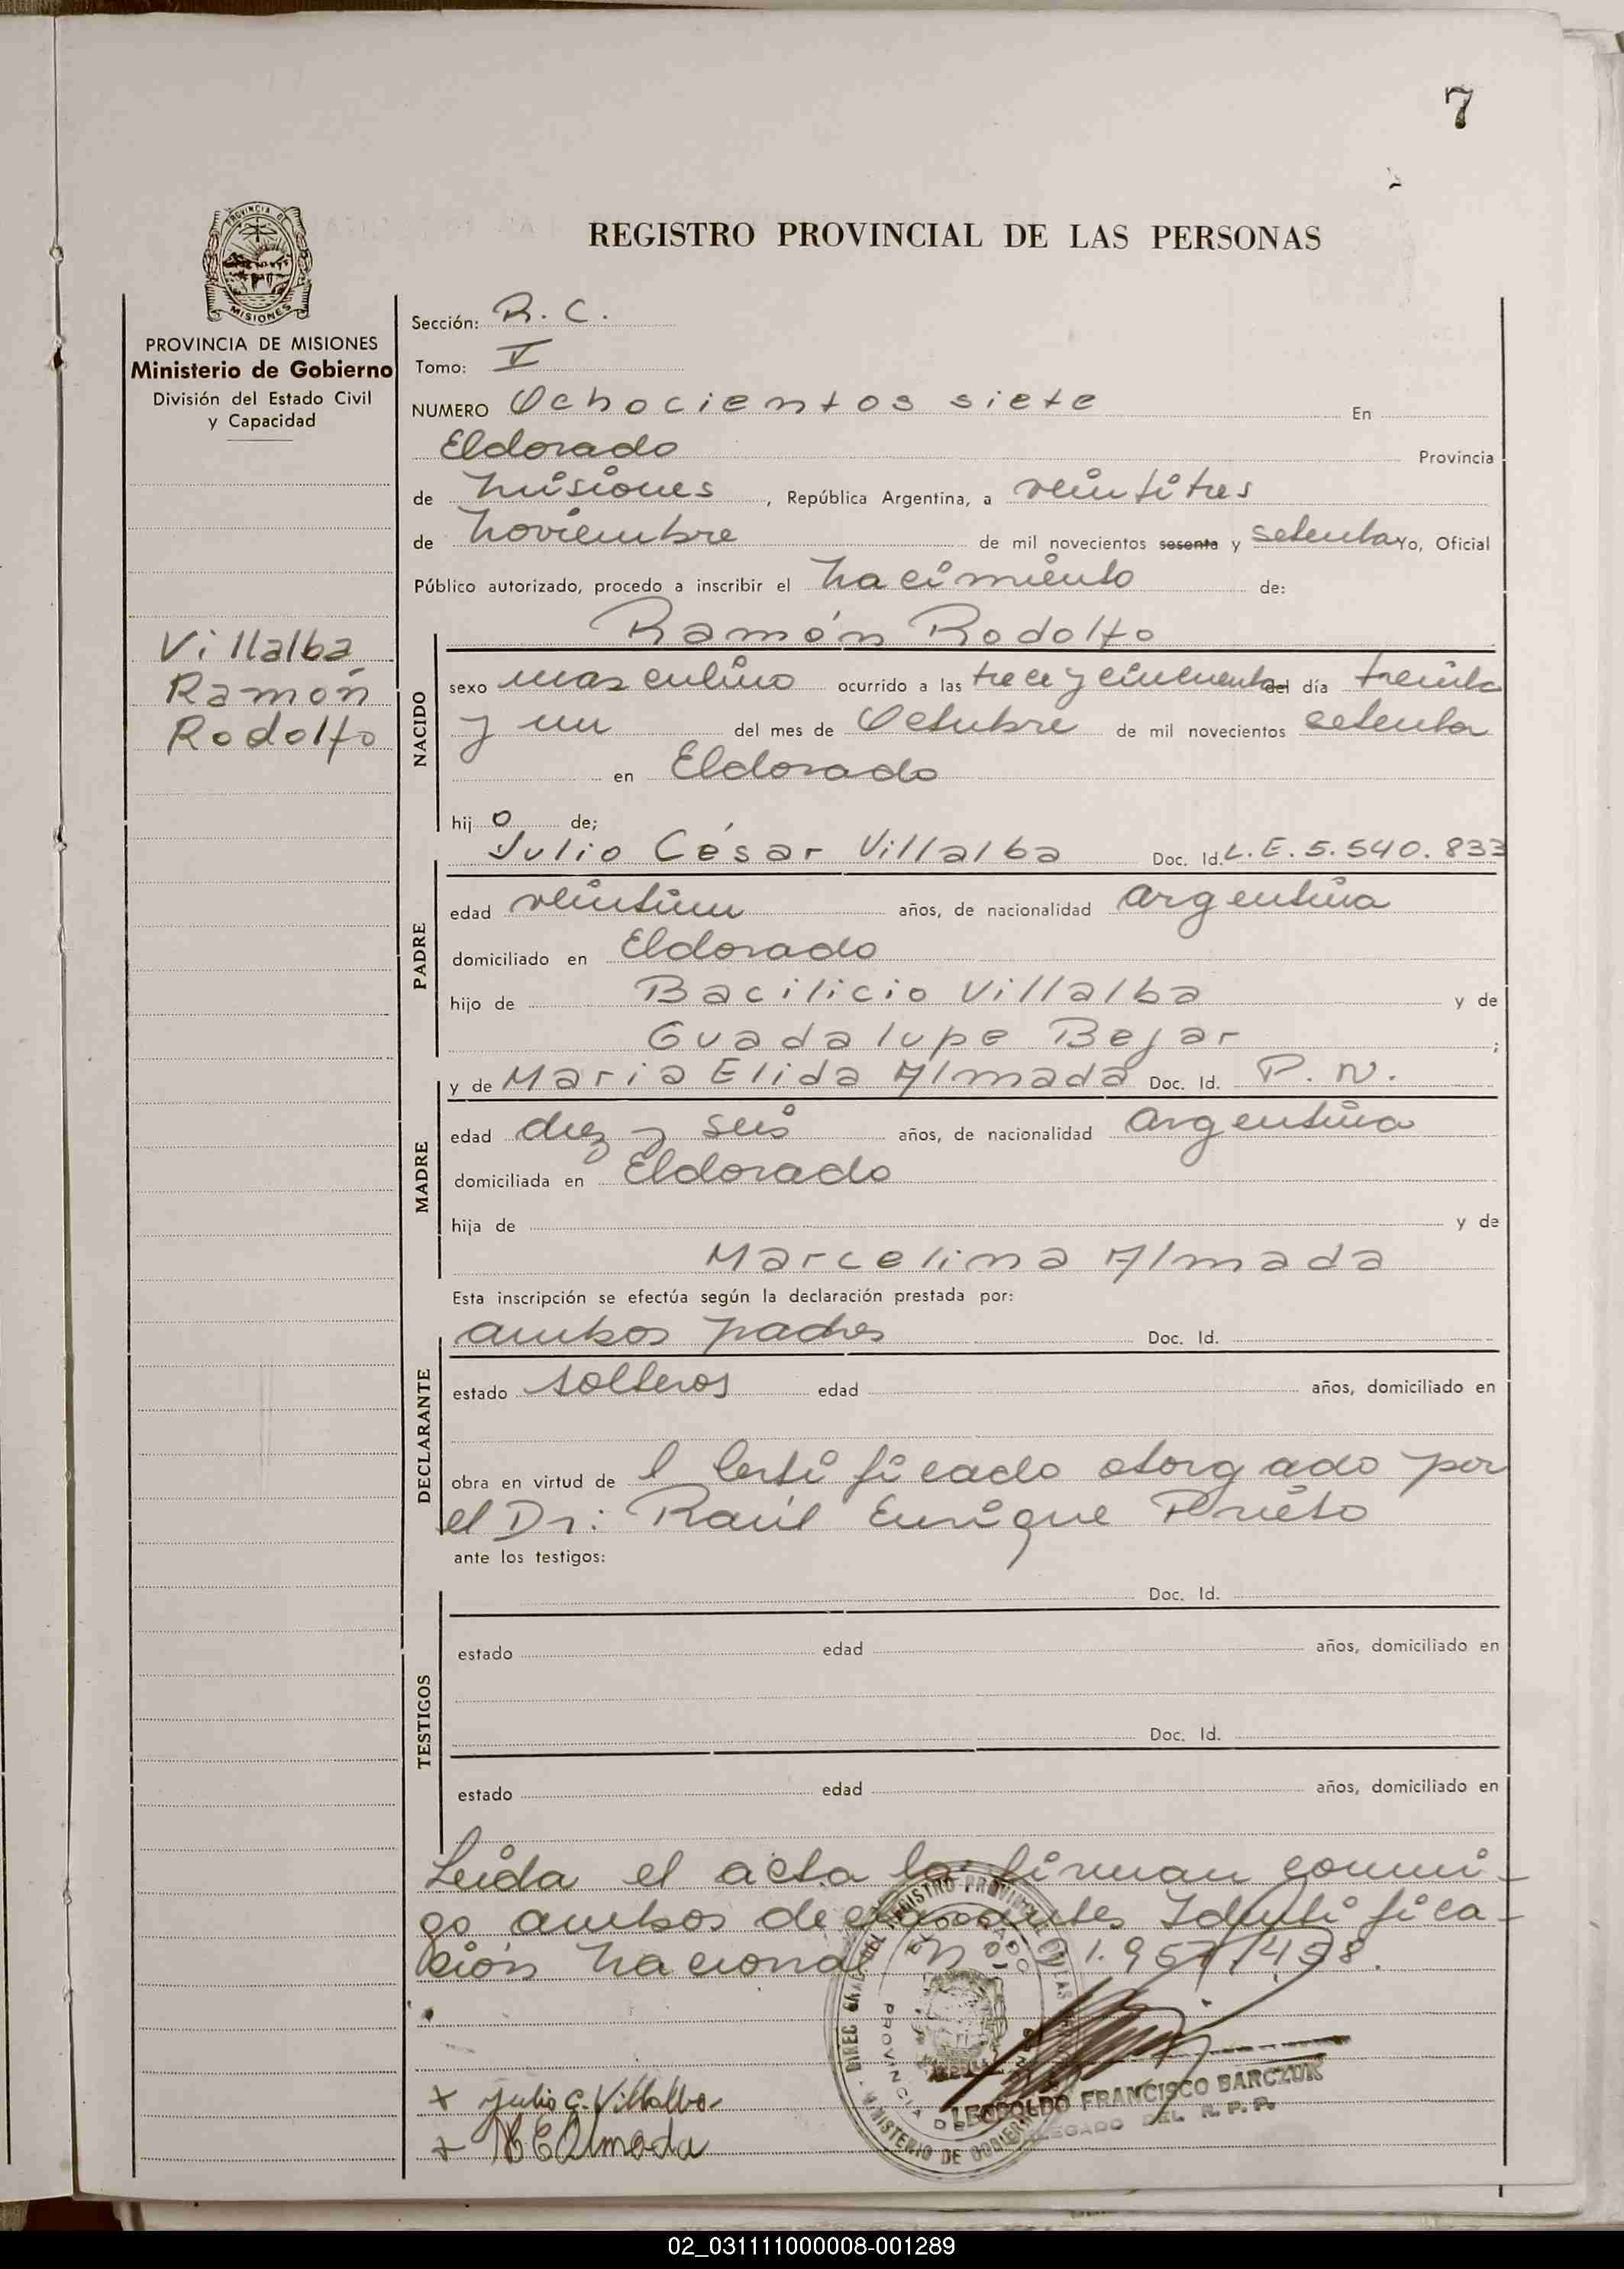 7
REGISTRO PROVINCIAL DE LAS PERSONAS
PROVINCIA DE
MISIONES
PROVINCIA DE MISIONES
Ministerio de Gobierno
División del Estado Civil
y Capacidad
Villalba
Ramón
Rodolfo
Sección: R. C.
Tomo: V
NUMERO Ochocientos siete En
Eldorado Provincia
de Misiones, República Argentina, a veintitres
de Noviembre de mil novecientos sesenta y setenta Yo, Oficial
Público autorizado, procedo a inscribir el Nacimiento de:
Ramón Rodolfo
NACIDO
sexo masculino ocurrido a las trece y cincuenta del día treinta
y un del mes de Octubre de mil novecientos setenta
en Eldorado
hijo de;
Julio César Villalba Doc. Id. L. E. 5.540.833
PADRE
edad veintiun años, de nacionalidad argentina
domiciliado en Eldorado
hijo de Bacilicio Villalba y de
Guadalupe Bejar ;
y de Maria Elida Almada Doc. Id. P. N.
MADRE
edad diez y seis años, de nacionalidad argentina
domiciliada en Eldorado
hija de y de
Marcelina Almada
Esta inscripción se efectúa según la declaración prestada por:
ambos padres Doc. Id.
DECLARANTE
estado solteros edad años, domiciliado en
obra en virtud de l Certificado otorgado por
el Dr: Raúl Enrique Prieto
ante los testigos:
Doc. Id.
TESTIGOS
estado edad años, domiciliado en
Doc. Id.
estado edad años, domiciliado en
Leida el acta la firman conmi-
go ambos declarantes Identifica-
ción Nacional Nº 21.957.498.
x Julio C. Villalba
x M E Almada
LEOPOLDO FRANCISCO BARCZUK
DELEGADO DEL R. P. P.
MINISTERIO DE GOBIERNO
02_031111000008-001289